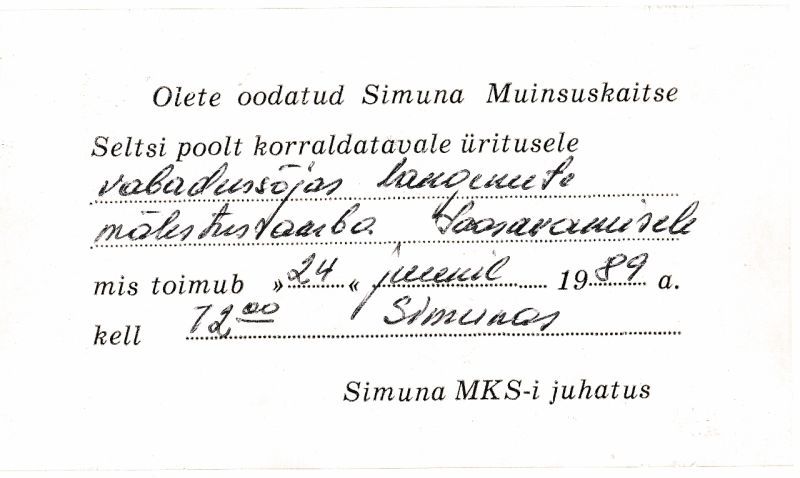 Olete oodatud Simuna Muinsuskaitse
Seltsi poolt korraldatavale üritusele
vabadussõjas langenute
mälestussamba taasavamisele
mis toimub »24« juunil 1989 a.
kell 12.00 Simunas
Simuna MKS-i juhatus